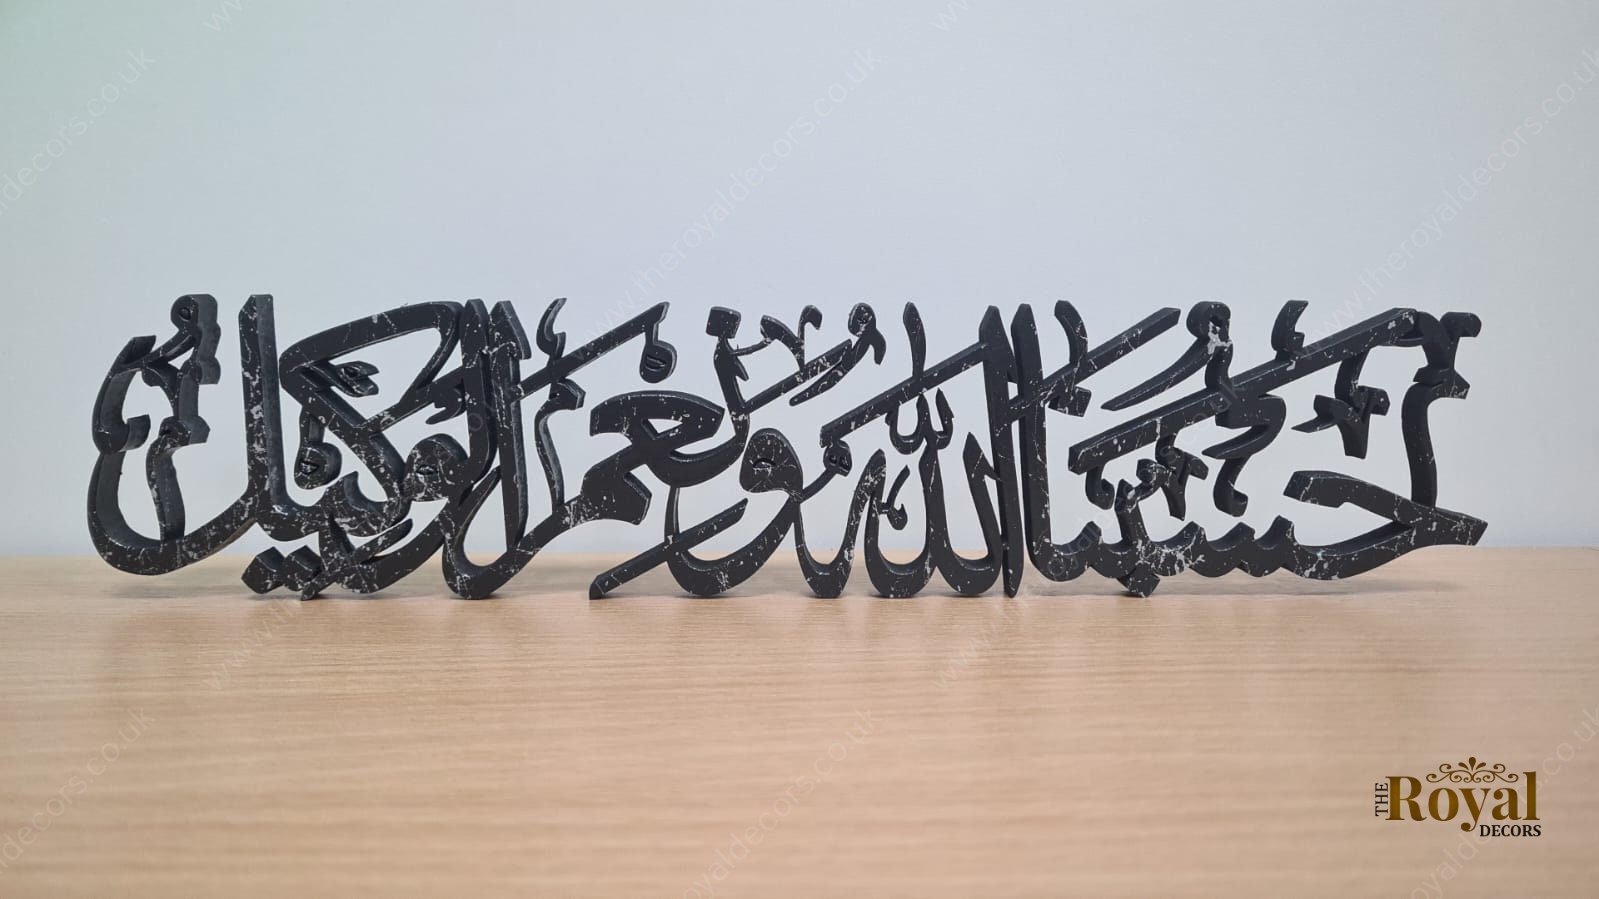 حسبنا الله ونعم الوكيل
THE Royal DECORS
www.theroyaldecors.co.uk